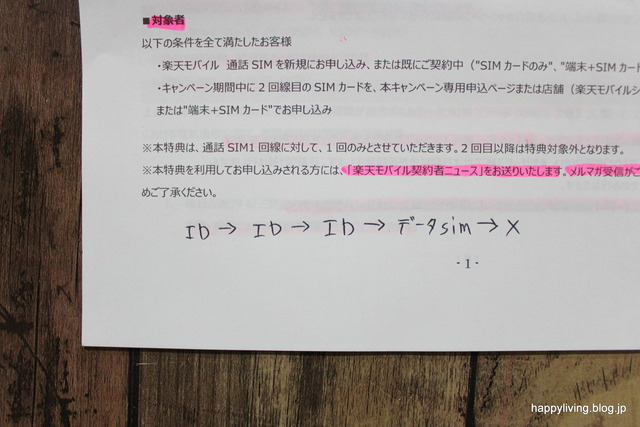 ■対象者
以下の条件を全て満たしたお客様
・楽天モバイル 通話SIMを新規にお申し込み、または既にご契約中（"SIMカードのみ"、"端末+SIMカー
・キャンペーン期間中に2回線目のSIMカードを、本キャンペーン専用申込ページまたは店舗（楽天モバイルシ
または"端末+SIMカード"でお申し込み
※本特典は、通話SIM1回線に対して、1回のみとさせていただきます。2回目以降は特典対象外となります。
※本特典を利用してお申し込みされる方には、「楽天モバイル契約者ニュース」をお送りいたします。メルマガ受信がご
めご了承ください。
ID→ID→ID→データsim→X
-1-
happyliving.blog.jp